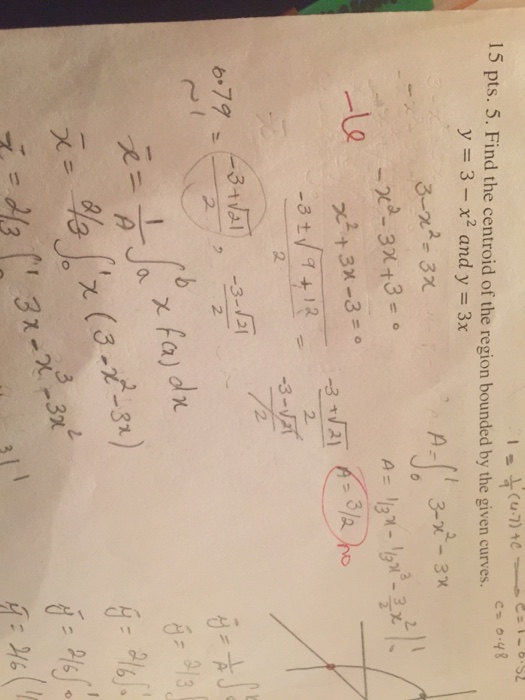 1 = 1/4 (4.7) + c → c = 1 - 0.52
c = 0.48
15 pts. 5. Find the centroid of the region bounded by the given curves.
y = 3 − x² and y = 3x
3-x² = 3x
-x² - 3x + 3 = 0
x² + 3x - 3 = 0
-3 ± √9 + 12 / 2 = -3 + √21 / 2
-3 - √21 / 2
0.79 = -3 + √21 / 2 , -3 - √21 / 2
~ 1
-6
A = ∫₀¹ 3 - x² - 3x
A = 1/3x - 1/3x³ - 3/2 x² |₀¹
A = 3/2 no
x̄ = 1/A ∫ₐᵇ x f(x) dx
x̄ = 2/3 ∫₀¹ x (3 - x² - 3x)
x̄ = 2/3 ∫₀¹ 3x - x³ - 3x²
ȳ = 1/A ∫
ȳ = 2/3 ∫
ȳ = 2/6 ∫₀¹
ȳ = 2/6 ∫₀
ȳ = 2/6 (